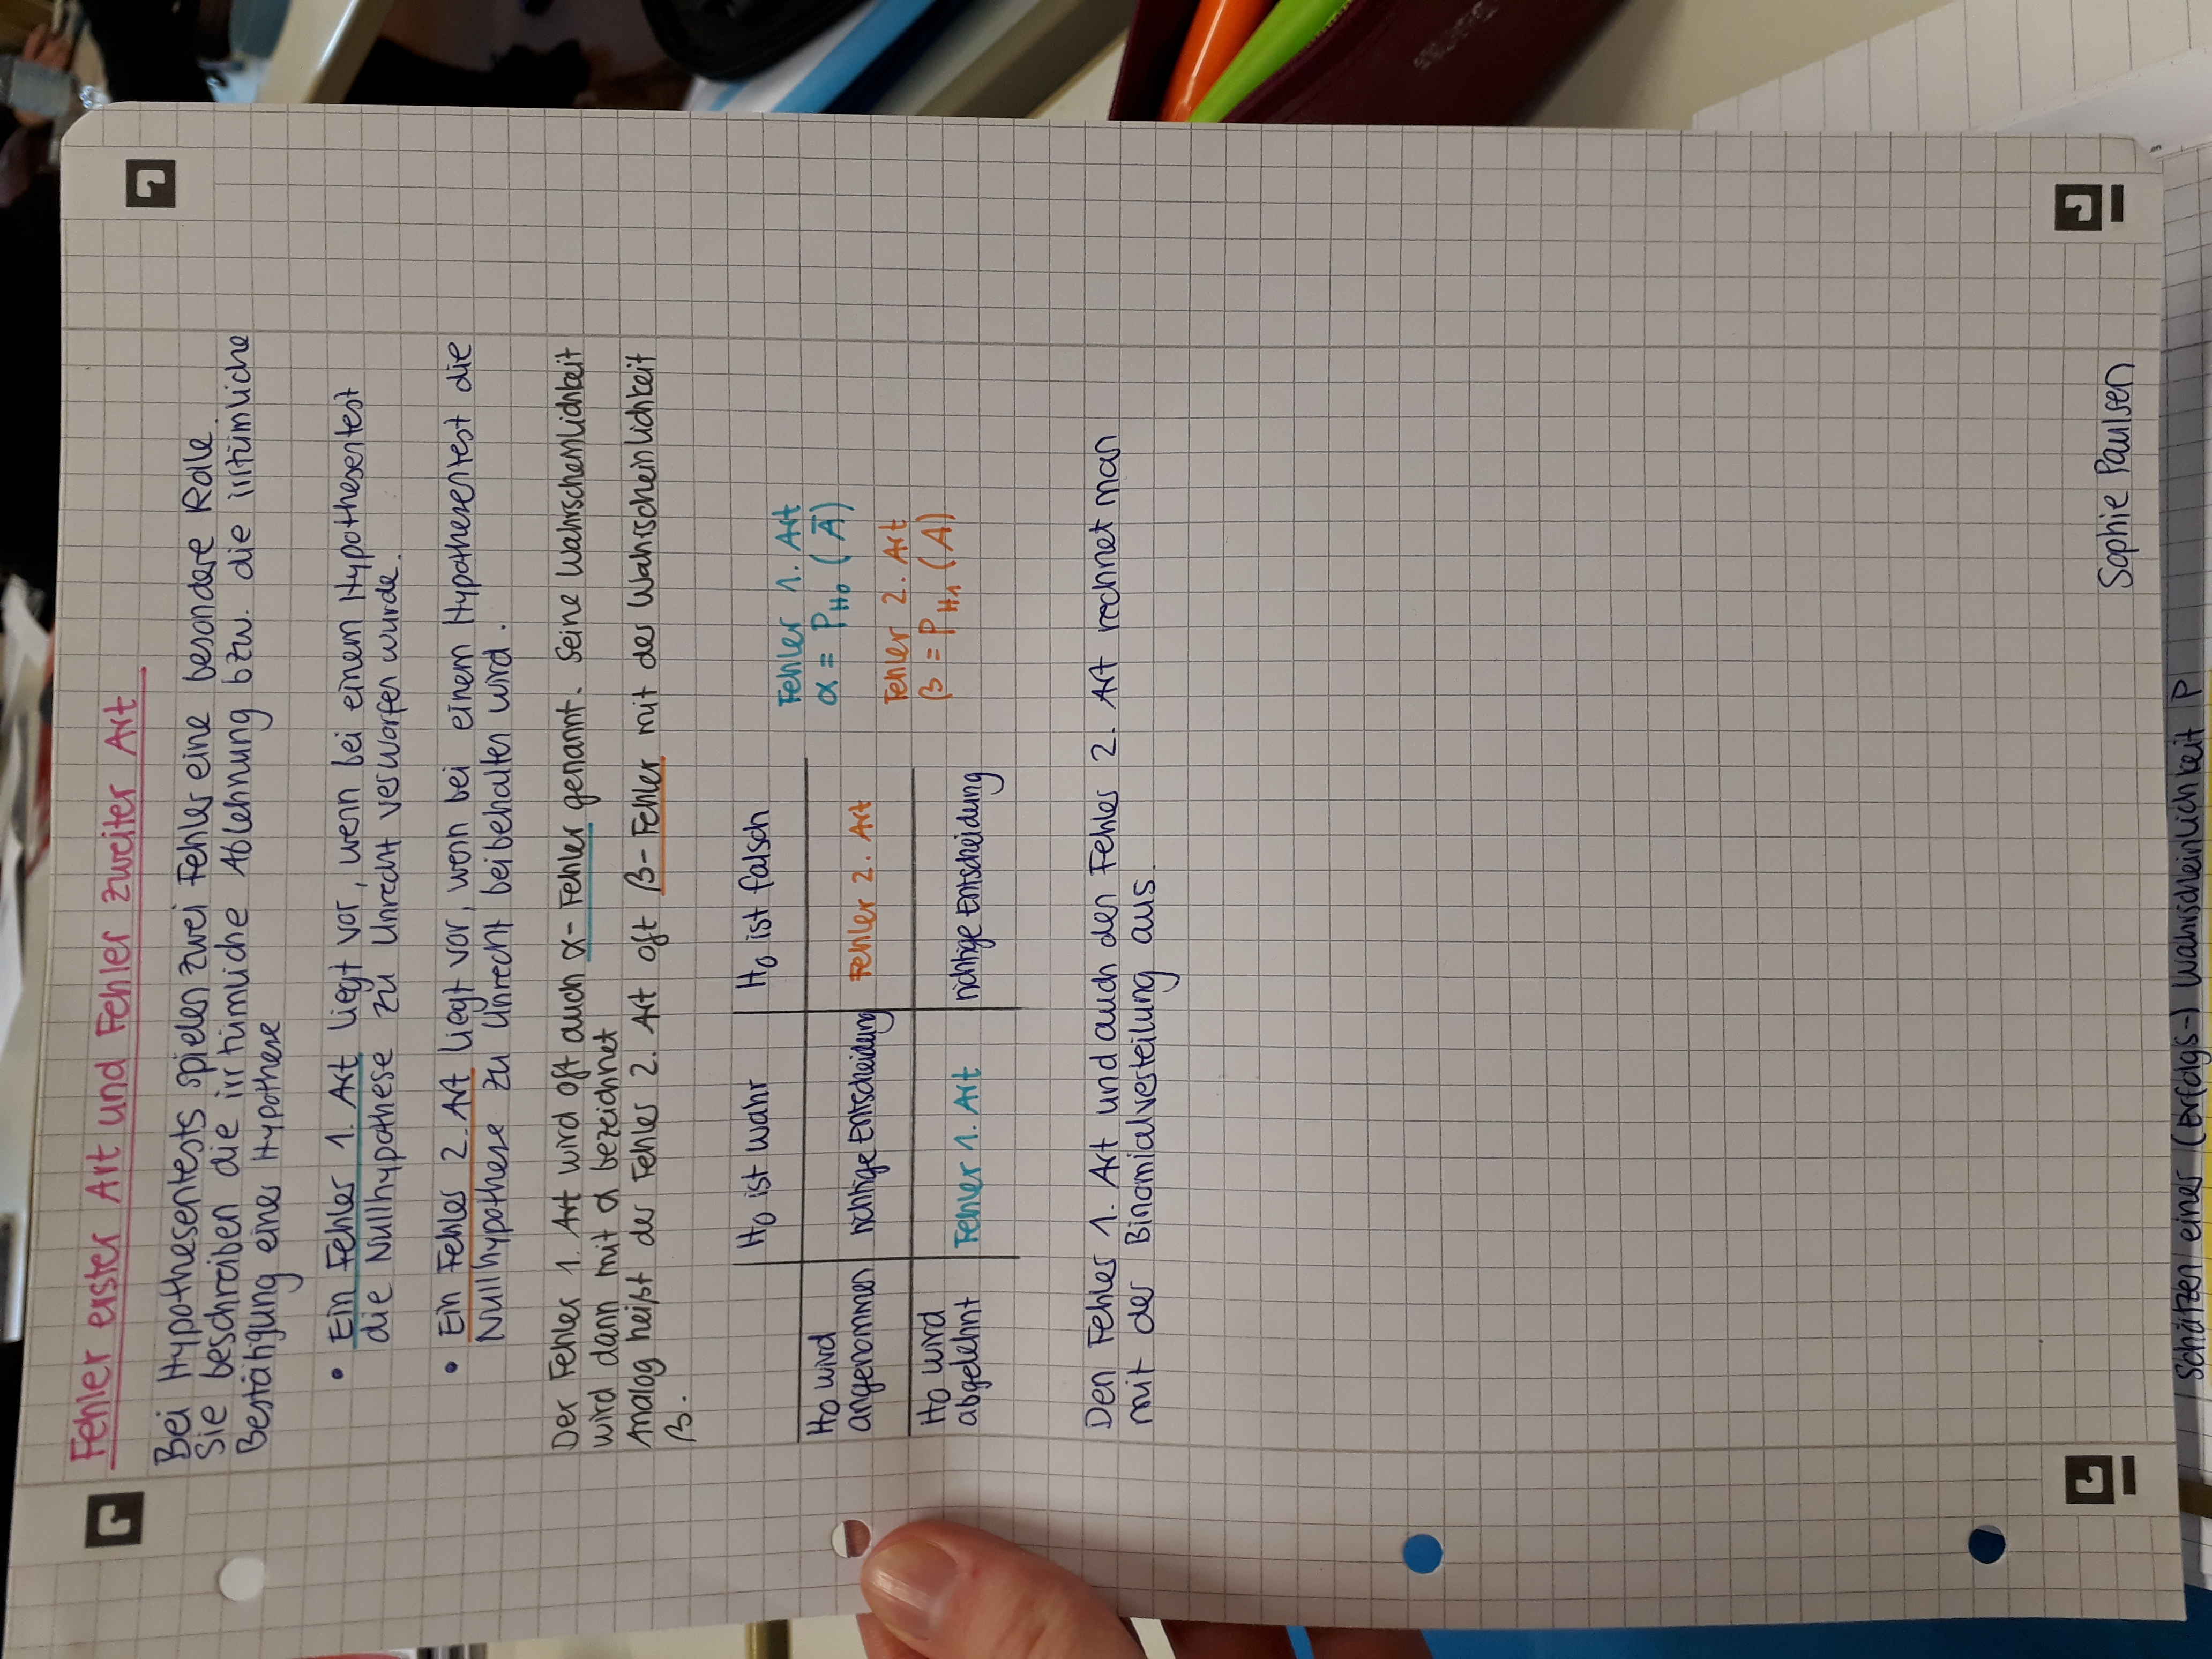 Fehler erster Art und Fehler zweiter Art
Bei Hypothesentests spielen zwei Fehler eine besondere Rolle.
Sie beschreiben die irrtümliche Ablehnung bzw. die irrtümliche
Bestätigung einer Hypothese
• Ein Fehler 1. Art liegt vor, wenn bei einem Hypothesentest
die Nullhypothese zu Unrecht verworfen wurde.
• Ein Fehler 2. Art liegt vor, wenn bei einem Hypothesentest die
Nullhypothese zu Unrecht beibehalten wird.
Der Fehler 1. Art wird oft auch α-Fehler genannt. Seine Wahrscheinlichkeit
wird dann mit α bezeichnet
Analog heißt der Fehler 2. Art oft β-Fehler mit der Wahrscheinlichkeit
β.
H0 ist wahr H0 ist falsch
H0 wird angenommen richtige Entscheidung Fehler 2. Art
H0 wird abgelehnt Fehler 1. Art richtige Entscheidung
Fehler 1. Art
α = PH0 (Ā)
Fehler 2. Art
β = PH1 (A)
Den Fehler 1. Art und auch den Fehler 2. Art rechnet man
mit der Binomialverteilung aus.
Sophie Paulsen
Schätzen einer (Erfolgs-) Wahrscheinlichkeit P